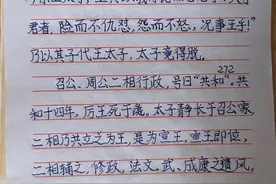 君者,险而不仇怼,怨而不怒,况事王乎!"
乃以其子代王太子,太子竟得脱。
召公、周公二相行政,号曰"共和"。共
272
和十四年,厉王死于彘。太子静长于召公家,
二相乃共立之为王,是为宣王。宣王即位,
二相辅之,修政,法文、武、成康之遗风,